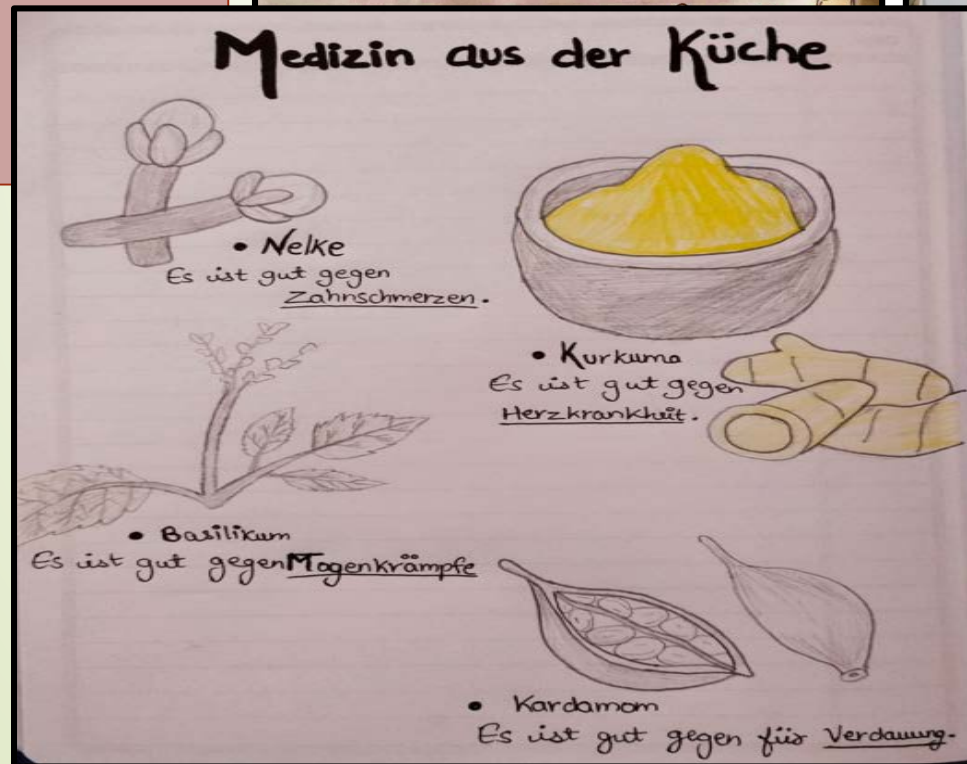 Medizin aus der Küche
• Nelke
Es ist gut gegen
Zahnschmerzen.
• Kurkuma
Es ist gut gegen
Herzkrankheit.
• Basilikum
Es ist gut gegen Magenkrämpfe
• Kardamom
Es ist gut gegen für Verdauung.